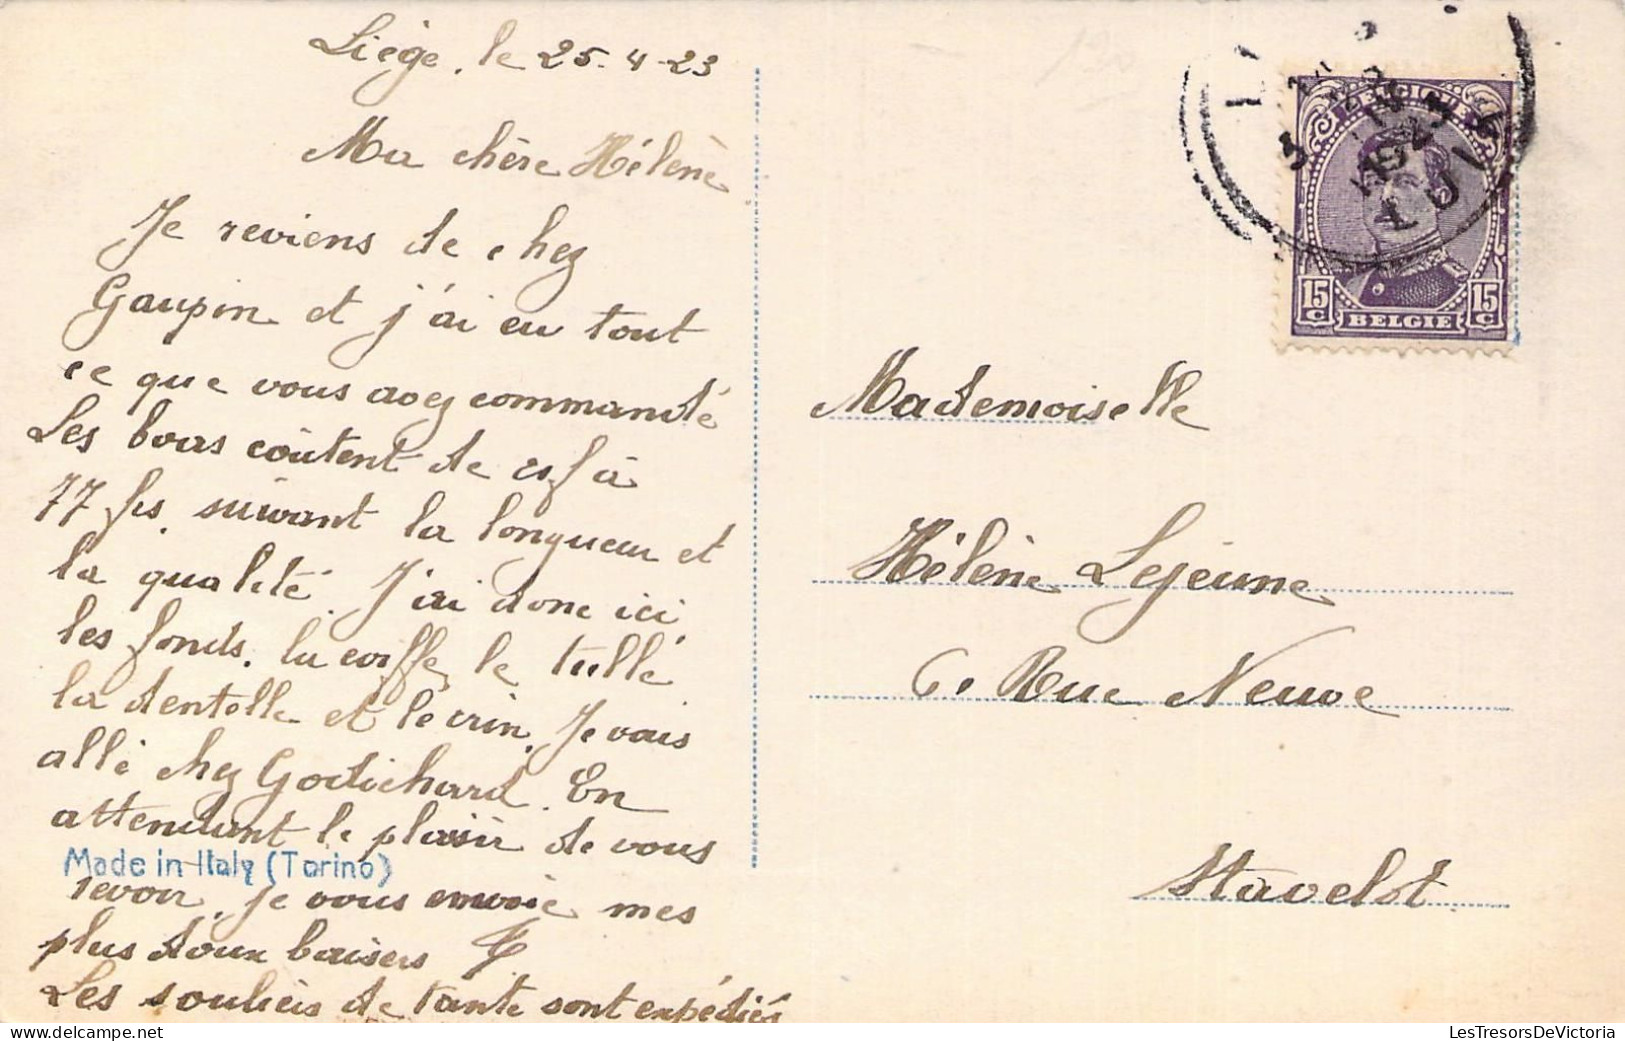 Liége, le 25-4-23
Ma chère Hélène
Je reviens de chez
Gaupin et j'ai eu tout
ce que vous avez commandé
Les bras coûtent de à
77 frs. suivant la longueur et
la qualité. J'ai donc ici
les fonds. la coiffe, le tulle
la dentelle et le crin. Je vais
allé chez Godichard. En
attendant le plaisir de vous
Made in Italy (Torino)
revoir, je vous envoie mes
plus doux baisers
Les souliers de tante sont expédiés
BELGIQUE
15 C
BELGIE
15 C
Mademoiselle
Hélène Lejeune
6. Rue Neuve
Stavelot.
LesTresorsDeVictoria